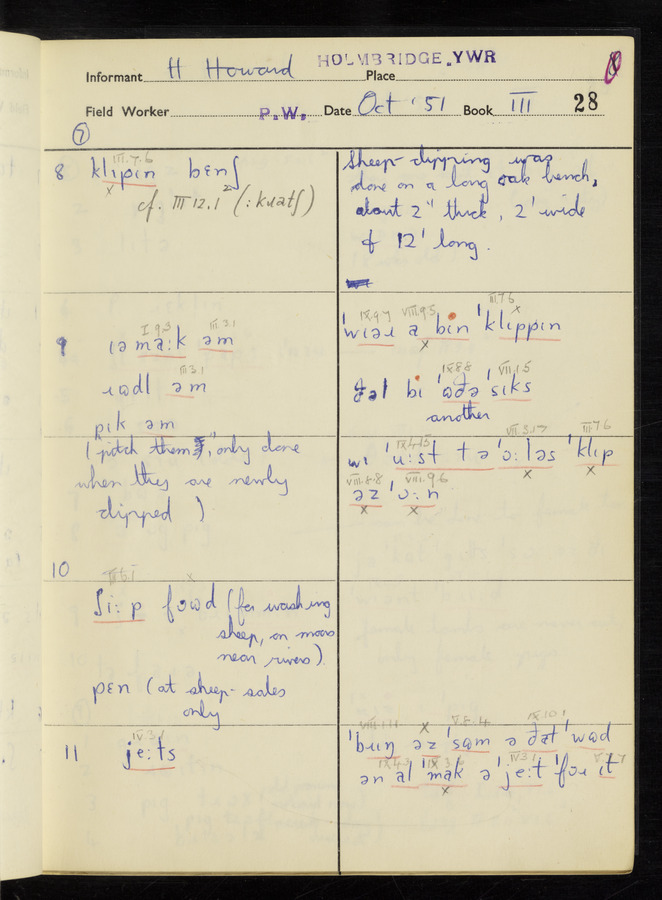 HOLMBRIDGE. YWR
Informant H Howard Place
Field Worker P.W. Date Oct '51 Book III 28
7
III.7.6
8 klɪpin bɛnʃ
x
cf. III 12.1 (:kɹatʃ)
Sheep-clipping was
done on a long oak bench,
about 2" thick, 2' wide
& 12' long.
I 9.3 III.3.1
9 ɹəma:k əm
III.3.1
ɹɒdl əm
pɪk əm
(pitch them, only done
when they are newly
clipped)
IX.9.7 VIII.9.5 III.7.6
'wɪəɹ a bin 'klɪppin
x
IX.8.8 VII.1.5
bi 'siks
another
IX.4.15 VII.3.17 III.7.6
wɪ 'u:st tə 'ɔ:ləs 'klɪp
VIII.8.8 VIII.9.6 x x
əz 'ɔ:n
x x
10
III.6.1 x
ʃi:p fɔʊd (for washing
sheep, on moors
near rivers).
pɛn (at sheep-sales
only)
IV.3.1
11 je:ts
VIII.1.11 x V.8.14 IX.10.1
'bɹɪŋ əz 'sʊm ə ðat 'wʊd
IX.4.3 IX.3.6 IV.3.1 V.7.7
ən al 'mak ə 'je:t 'fɔɹ ɪt
x